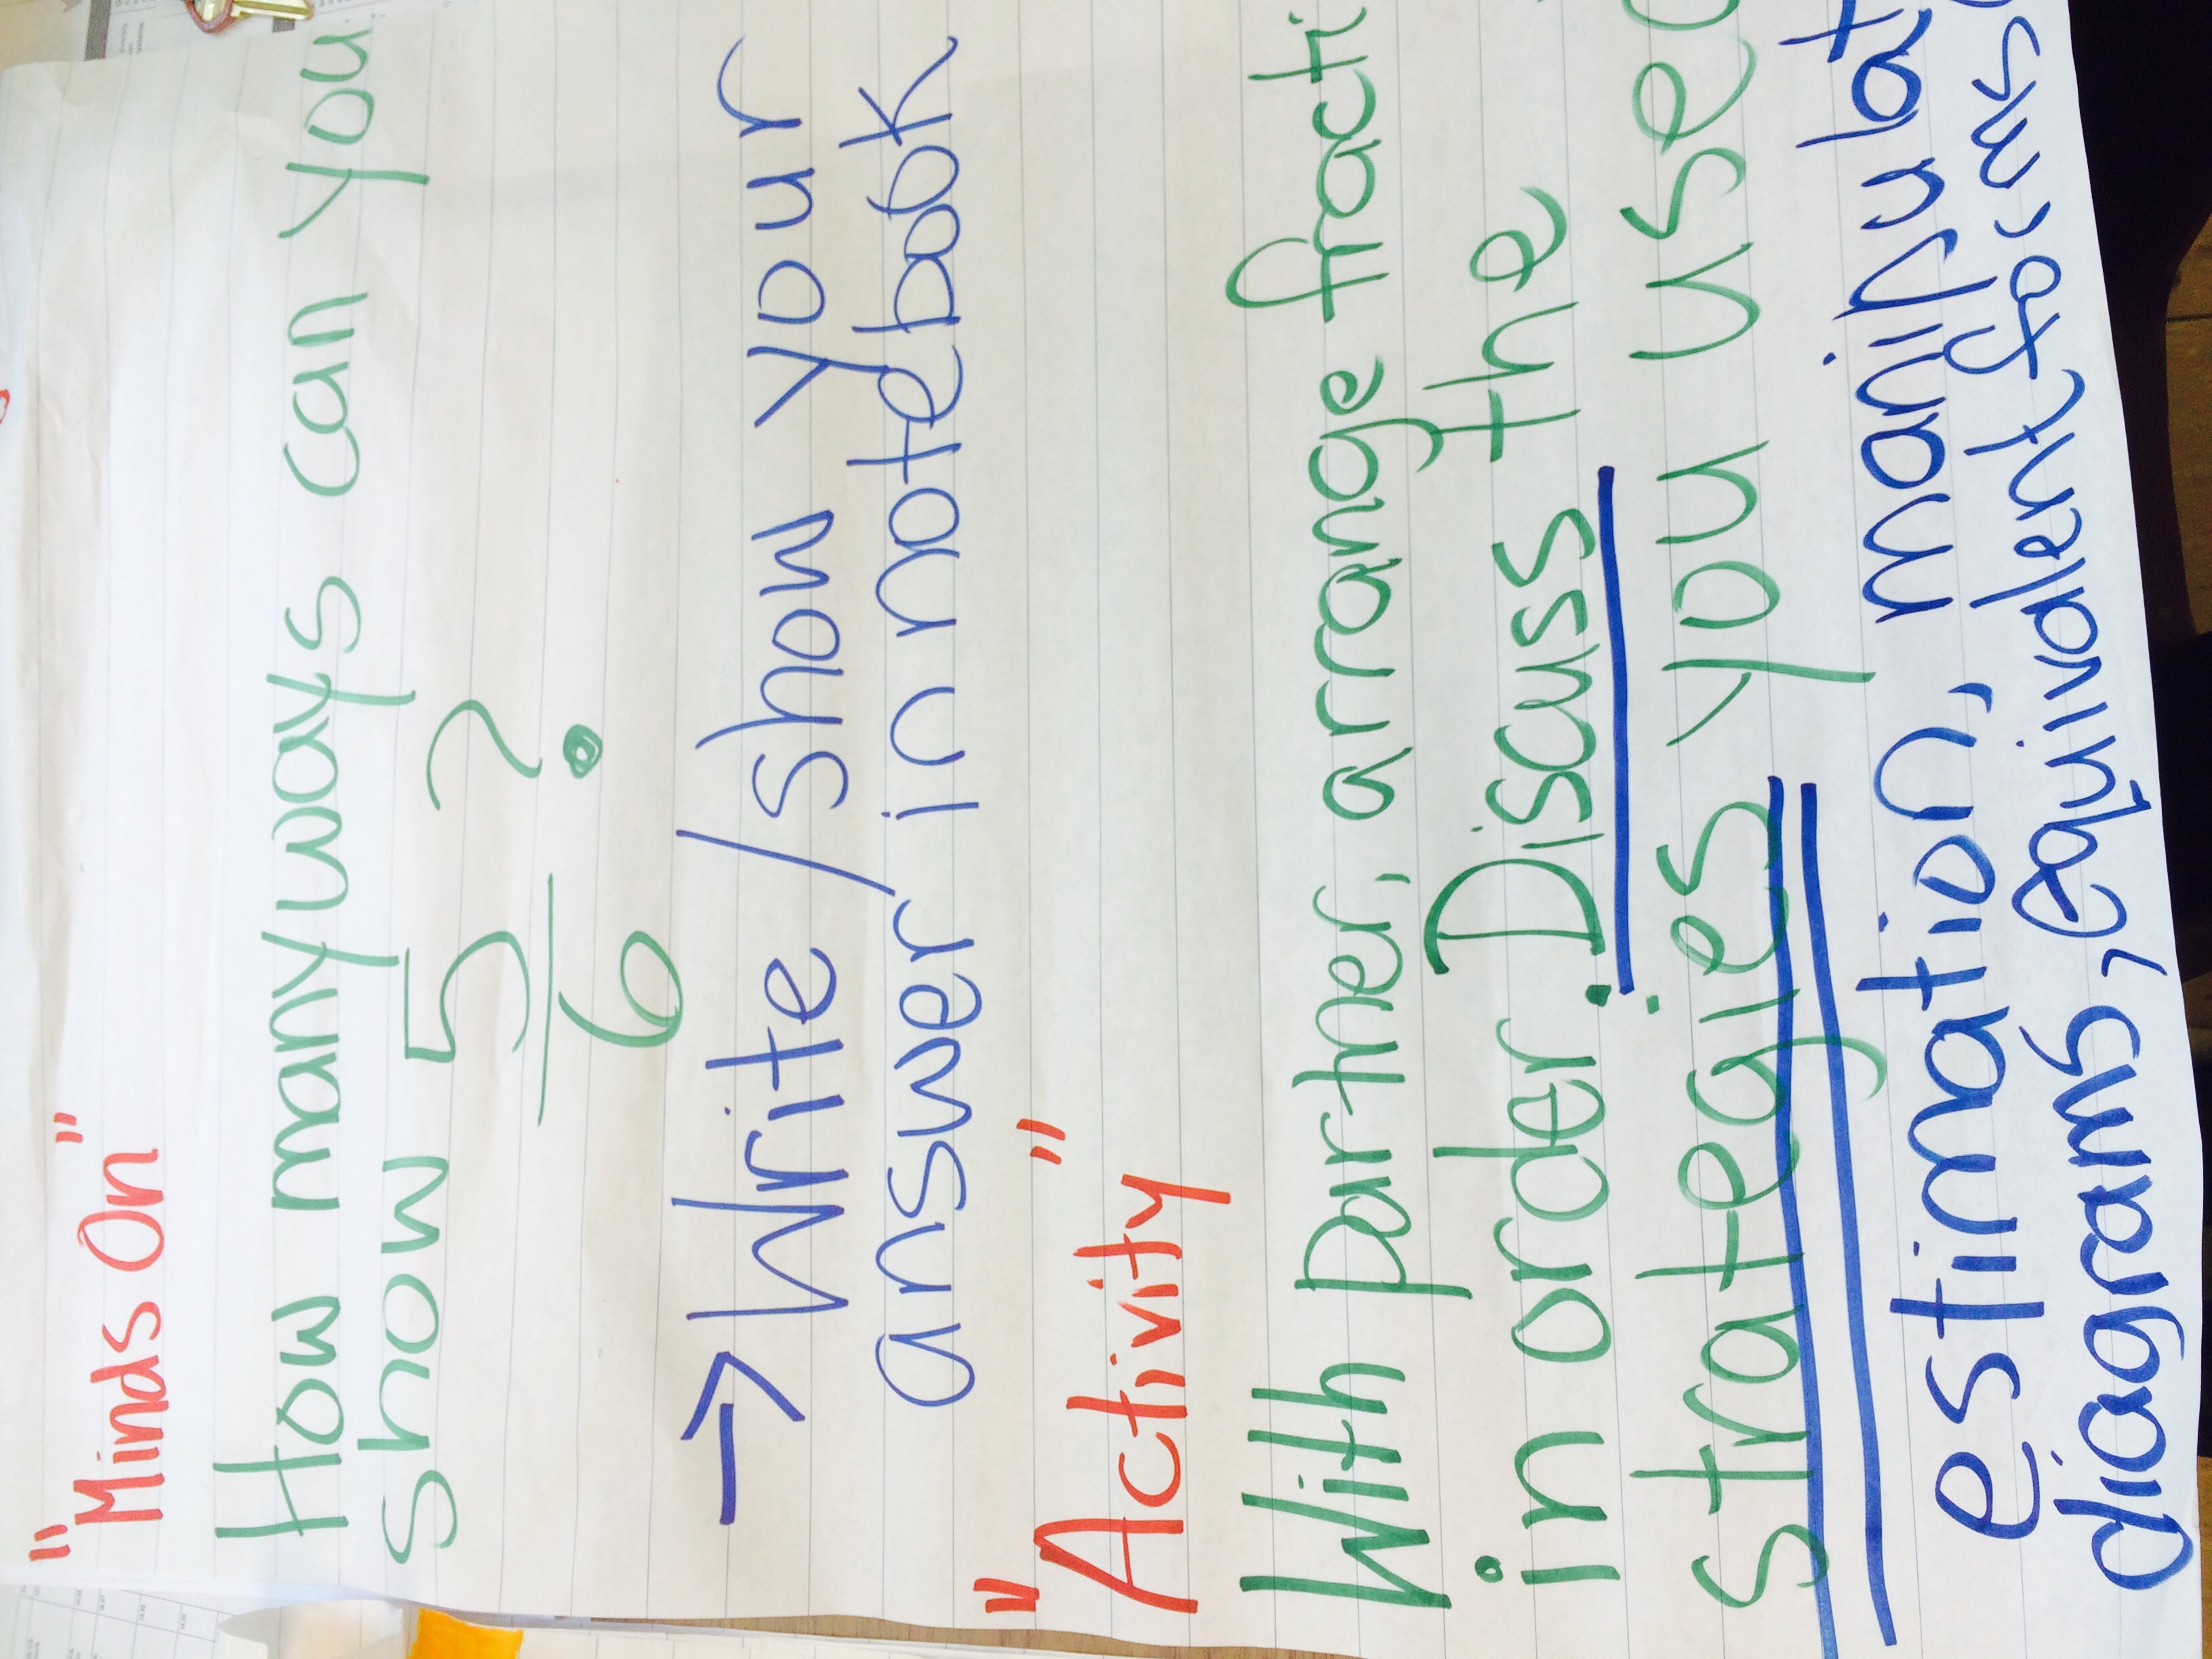 "Minds On"
How many ways can you
show 5/6?
→ Write/show your
answer in notebook
"Activity"
With partner, arrange fracti
in order. Discuss the
strategies you used
estimation, manipulat
diagrams, equivalent forms